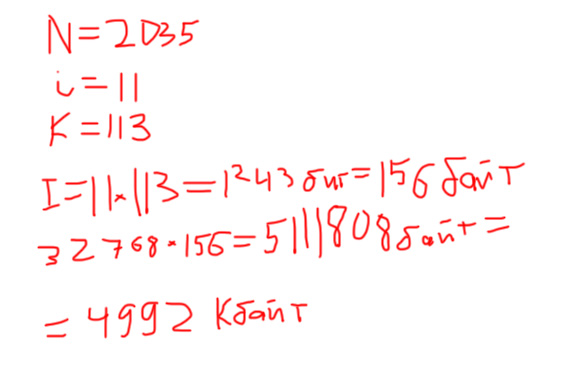 N=2035
i=11
K=113
I=11*113=1243 бит=156 байт
32768*156=5111808 байт=
=4992 Кбайт